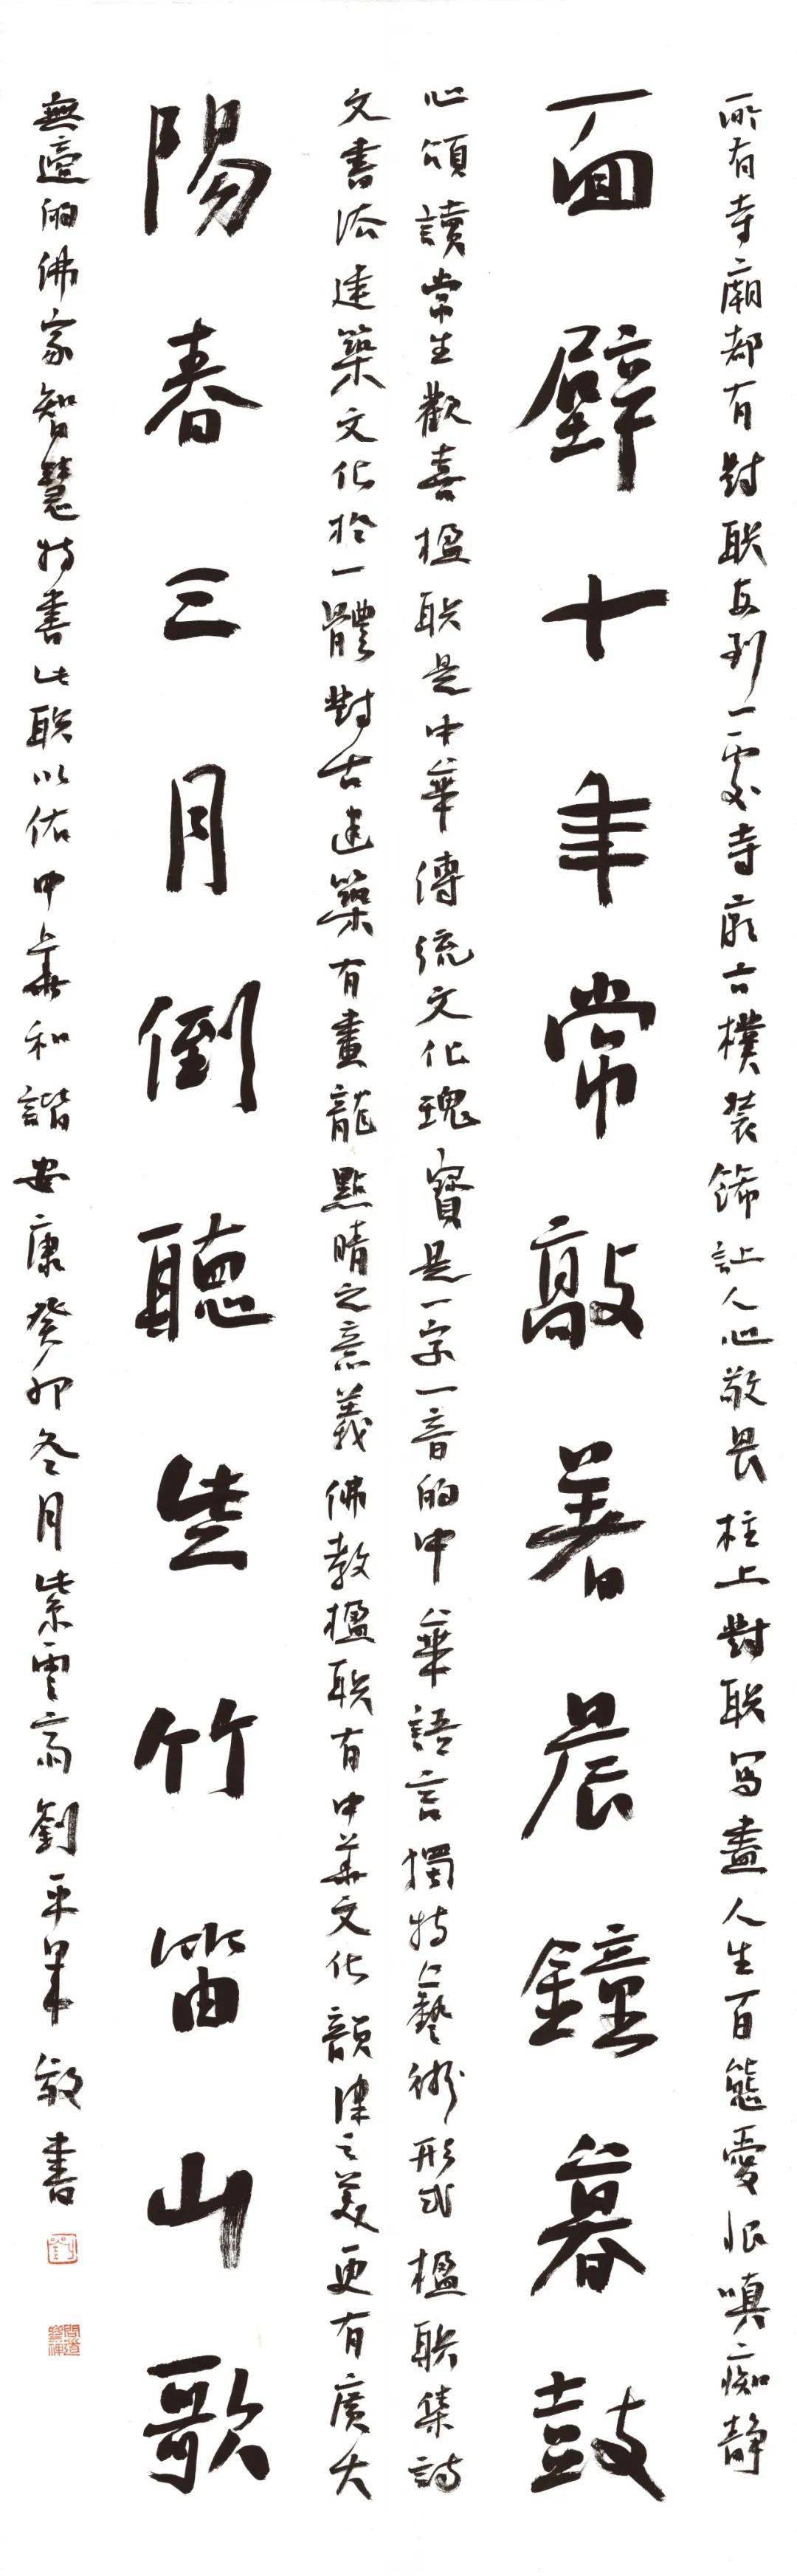 所有寺廟都有對联每到一處寺廟古樸装飾讓人心敬畏柱上對联写盡人生百態愛恨嗔痴静
面壁十年常敲着晨鐘暮鼓
心頌讀常生歡喜楹联是中華傳統文化瑰寶是一字一音的中華語言獨特之藝術形式楹联集詩
文書法建築文化於一體對古建築有畫龍點睛之意義佛教楹联有中華文化韻律之美更有廣大
陽春三月倒聽些竹笛山歌
無邊的佛家智慧特書此联以佑中華和諧安康癸卯冬月紫雲斋劉平華敬書